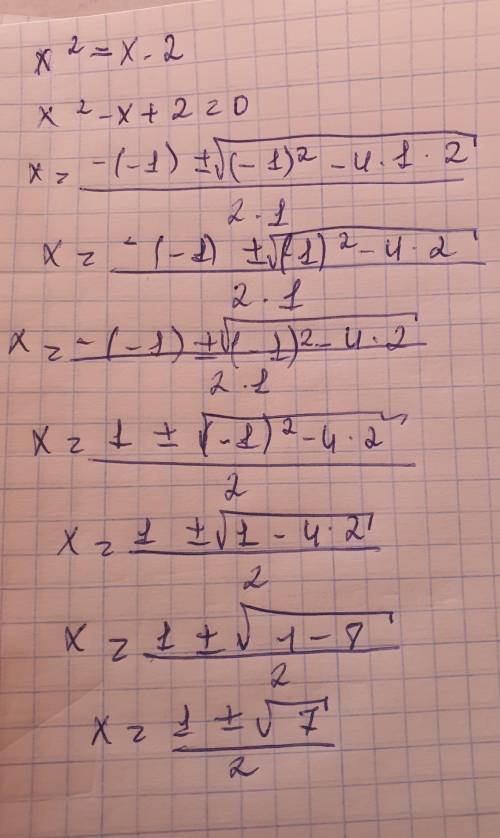 x² = x - 2
x² - x + 2 = 0
x = (-(-1) ± √((-1)² - 4 · 1 · 2)) / (2 · 1)
x = (-(-1) ± √((-1)² - 4 · 2)) / (2 · 1)
x = (-(-1) ± √((-1)² - 4 · 2)) / (2 · 1)
x = (1 ± √((-1)² - 4 · 2)) / 2
x = (1 ± √(1 - 4 · 2)) / 2
x = (1 ± √(1 - 8)) / 2
x = (1 ± √7) / 2